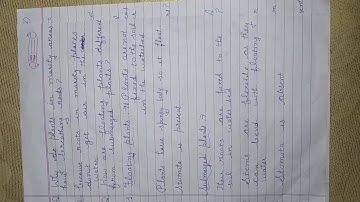 Why do plants in marshy areas
had breathing roots?
because roots in marshy places
don't get air in the
water.
How are floating plants different
from submerged plants?
Floating plants → Plants are not
fixed to the soil is
in the
Plants have spongy body so it float.
stomata is present
Submerged plants →
Their roots are fixed to the
soil in water bed
Stems are flexible as they
can bend with floating
water
Stomata is absent